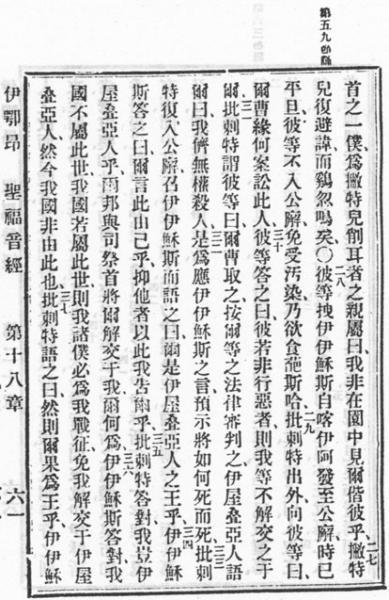 第五九端
首之一僕爲撇特兒削耳者之親屬曰我非在園中見爾偕彼乎二七撇特
兒復避諱而鷄忽鳴矣○二八彼等拽伊伊穌斯自喀伊阿發至公廨時巳
平旦彼等不入公廨免受污染乃欲食葩斯哈二九批剌特出外向彼等曰
爾曹緣何案訟此人三十彼等答之曰彼若非行惡者則我等不解交之于
爾三一批剌特謂彼等曰爾曹取之按爾等之法律審判之伊屋叠亞人語
爾曰我儕無權殺人三二是爲應伊伊穌斯之言預示將如何死而死三三批剌
特復入公廨召伊伊穌斯而語之曰爾是伊屋叠亞人之王乎三四伊伊穌
斯答之曰爾言此由己乎抑他者以此我告爾乎三五批剌特答對我豈伊
屋叠亞人乎爾邦與司祭首將爾解交于我爾何爲三六伊伊穌斯答對我
國不屬此世我國若屬此世則我諸僕必爲我戰征免我解交于伊屋
叠亞人然今我國非由此也三七批剌特語之曰然則爾果爲王乎伊伊穌
伊鄂昂 聖福音經 第十八章 六一